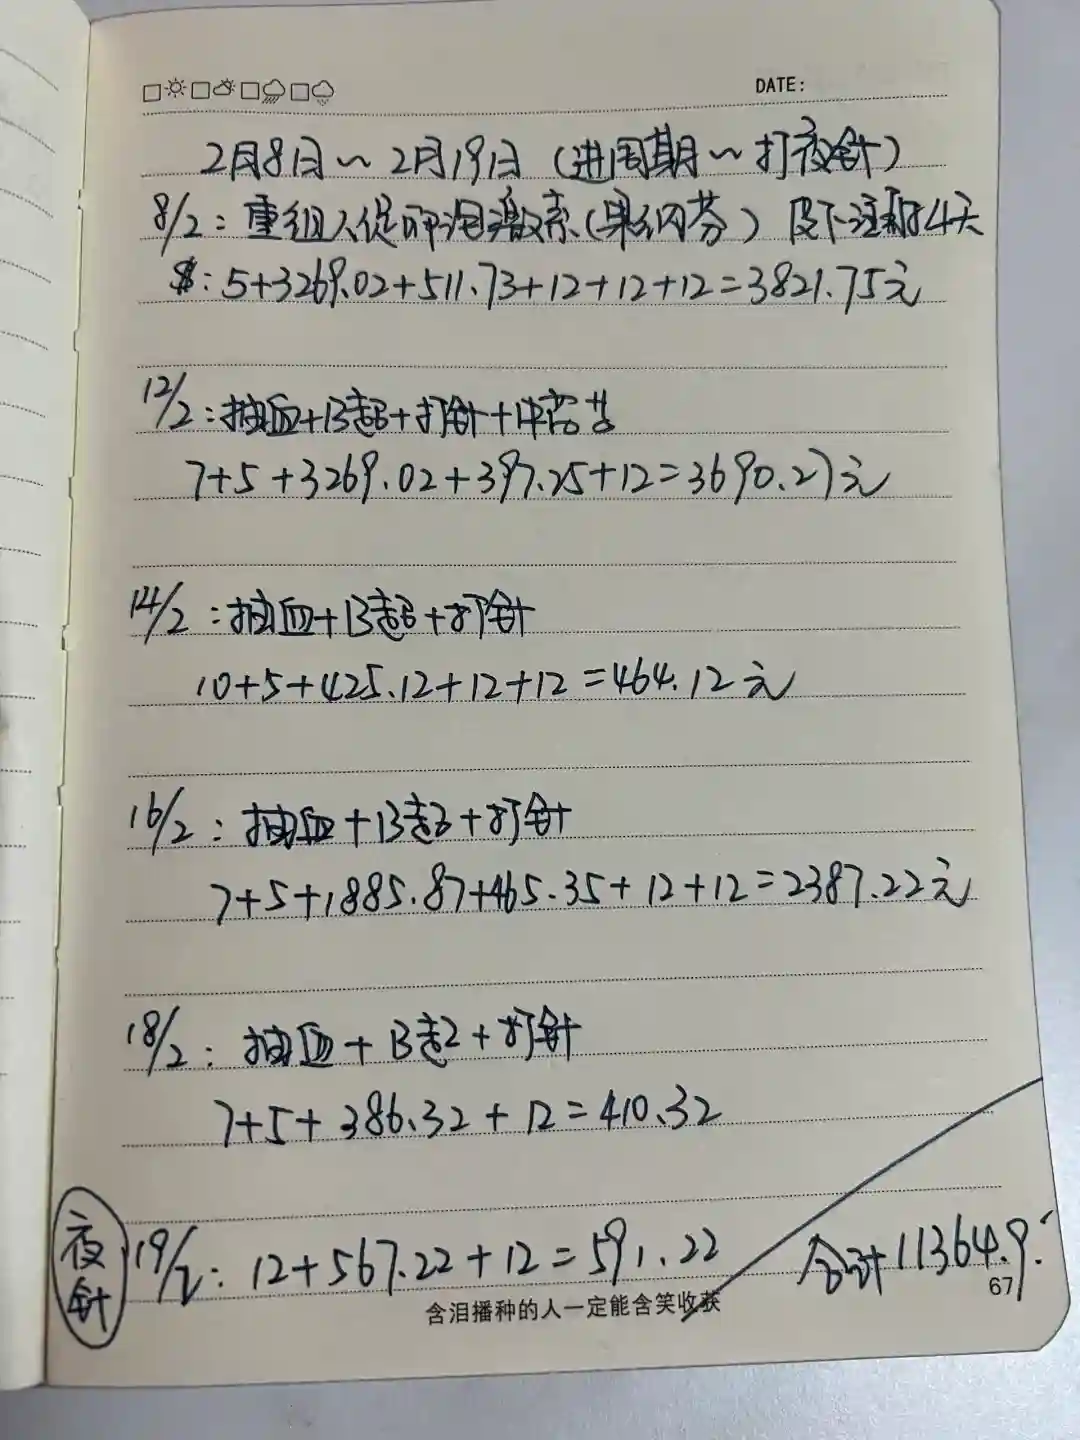 DATE:
2月8日～2月19日（进周期～打夜针）
8/2：重组人促卵泡激素（果纳芬）皮下注射4天
$：5+3269.02+511.73+12+12+12=3821.75元
12/2：抽血+B超+打针+
7+5+3269.02+397.25+12=3690.27元
14/2：抽血+B超+打针
10+5+425.12+12+12=464.12元
16/2：抽血+B超+打针
7+5+1885.87+465.35+12+12=2387.22元
18/2：抽血+B超+打针
7+5+386.32+12=410.32
夜针 19/2：12+567.22+12=591.22 合计11364.9
67
含泪播种的人一定能含笑收获